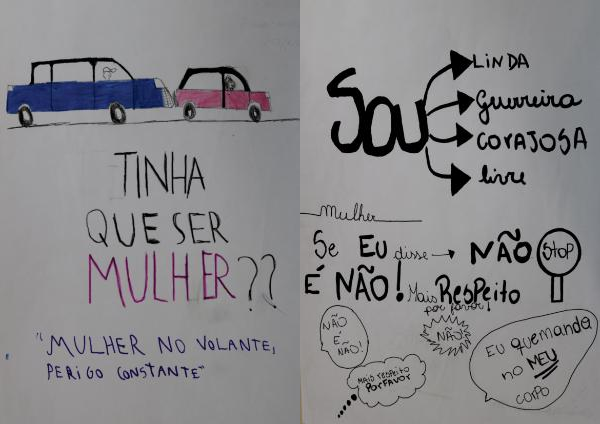 TINHA
QUE SER
MULHER??
"MULHER NO VOLANTE,
PERIGO CONSTANTE"
SOU
LINDA
Guerreira
CORAJOSA
livre
Mulher
Se EU disse → NÃO
STOP
É NÃO! Mais Respeito
por favor!
NÃO
É
NÃO!
NÃO
MAIS RESPEITO
POR FAVOR
EU que manda
no MEU
CORPO